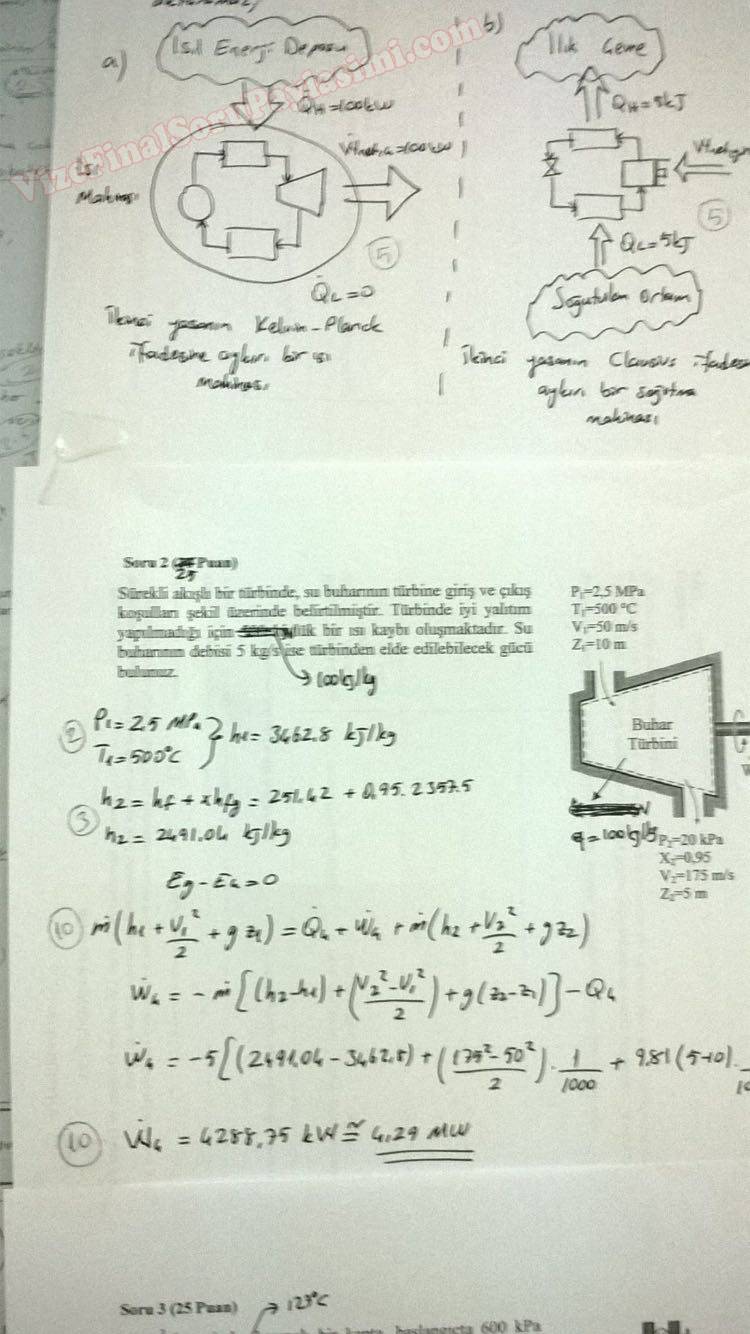 a)
Isıl Enerji Deposu
Q̇H=100kW
Isı
Makinası
Ẇnet,ç=100kW
5
Q̇L=0
İkinci yasanın Kelvin-Planck
ifadesine aykırı bir ısı
makinası
b)
Ilık Çevre
QH=5kJ
5
QL=5kJ
Soğutulan Ortam
İkinci yasanın Clausius ifades
aykırı bir soğutma
makinası
VizeFinalSoruPaylasimi.com
Soru 2 ( Puan)
25
Sürekli akışlı bir türbinde, su buharının türbine giriş ve çıkış
koşulları şekil üzerinde belirtilmiştir. Türbinde iyi yalıtım
yapılmadığı için lük bir ısı kaybı oluşmaktadır. Su
buharının debisi 5 kg/s ise türbinden elde edilebilecek gücü
bulunuz.
→100kj/kg
P1=2,5 MPa
T1=500 °C
V1=50 m/s
Z1=10 m
Buhar
Türbini
q=100kj/kg
P2=20 kPa
X2=0,95
V2=175 m/s
Z2=5 m
2
P1=2,5 MPa
T1=500°C
h1=3462.8 kj/kg
h2=hf+xhfg=251.42+0,95.2357.5
3
h2=2491.04 kj/kg
Eg-Eç=0
10
ṁ(h1+V1²/2+gz1)=Q̇ç+Ẇç+ṁ(h2+V2²/2+gz2)
Ẇç=-ṁ[(h2-h1)+(V2²-V1²/2)+g(z2-z1)]-Q̇ç
Ẇç=-5[(2491.04-3462,8)+(175²-50²/2).1/1000+9,81(5-10).
10
Ẇç=4288,75 kW≅4,29 MW
Soru 3 (25 Puan)
→123°C
başlangıçta 600 kPa